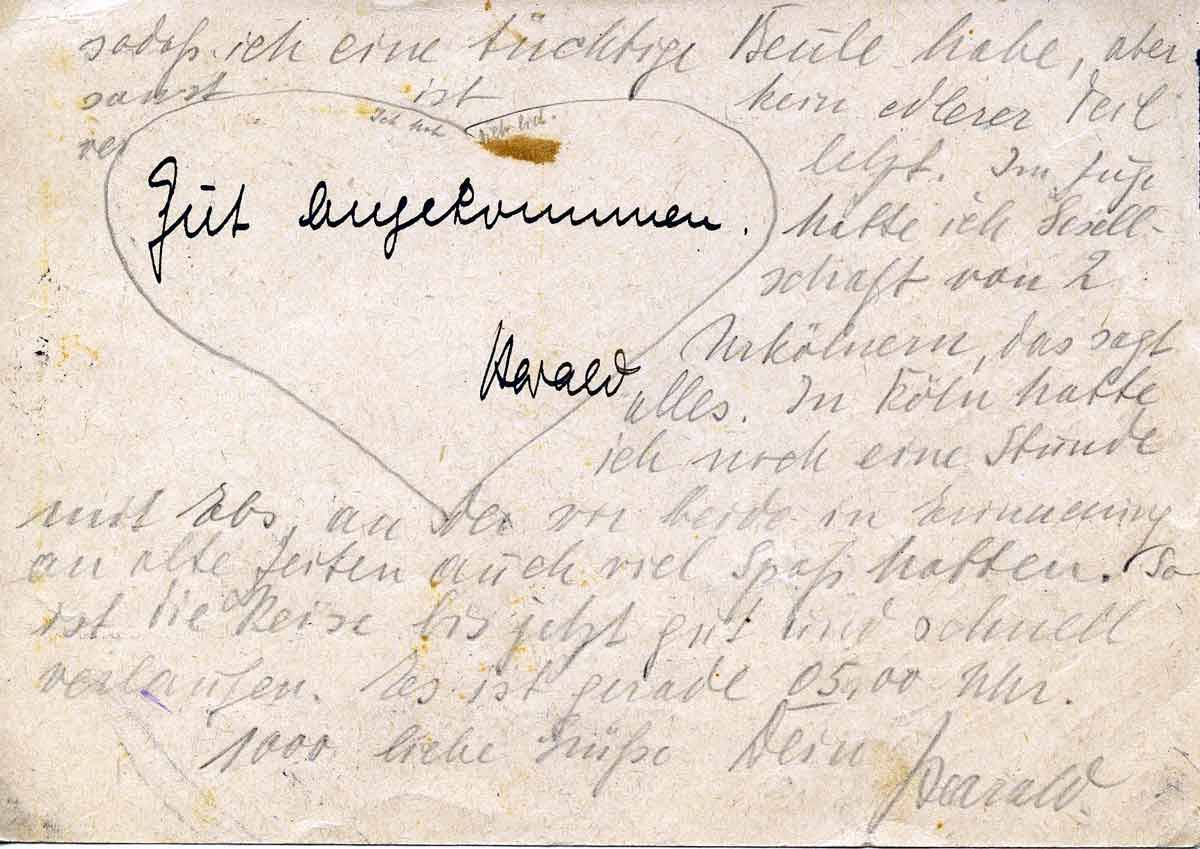 sodaß ich eine tüchtige Beule habe, aber
sonst ist kein edlerer Teil
ver letzt. Im Zuge
Ich hab Dich lieb.
Gut angekommen.
hatte ich Gesell-
schaft von 2
Harald
Urkölnern, das sagt
alles. In Köln hatte
ich noch eine Stunde
mit Ebs, an der wir beide in Erinnerung
an alte Zeiten auch viel Spaß hatten. So
ist die Reise bis jetzt gut und schnell
verlaufen. Es ist gerade 05.00 Uhr.
1000 liebe Grüße Dein Harald.